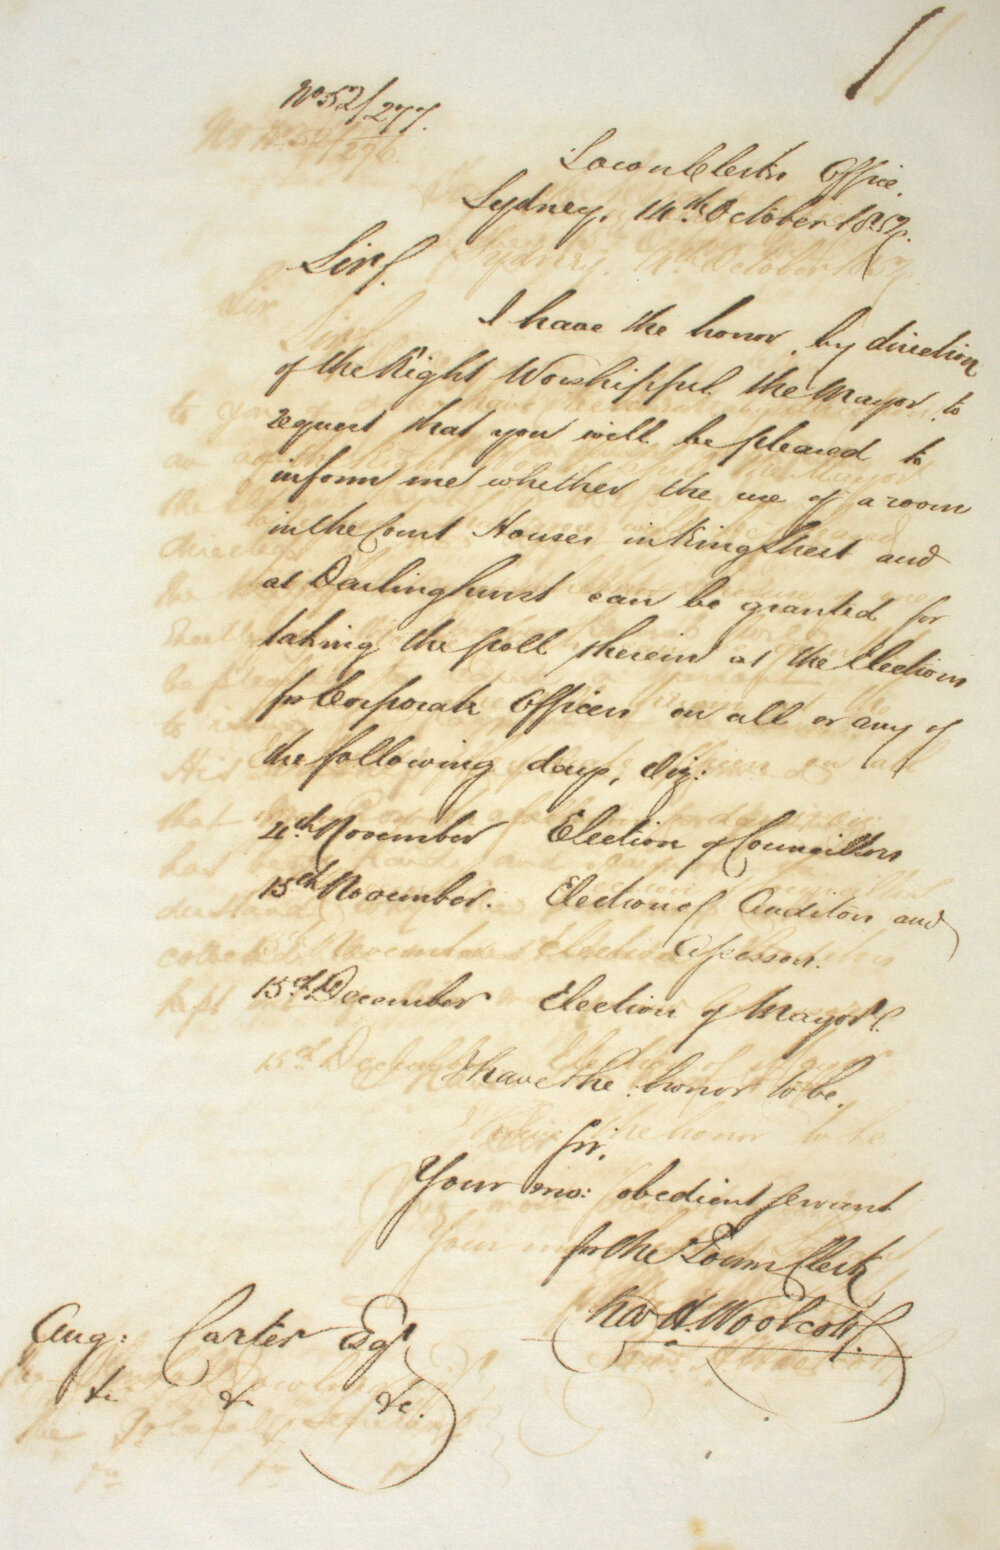 No 52/277.
Town Clerks Office.
Sydney, 14th October 1852.
Sir,
I have the honor, by direction
of the Right Worshipful the Mayor, to
request that you will be pleased to
inform me whether the use of a room
in the Court Houses in King Street and
at Darlinghurst can be granted for
taking the poll therein at the Elections
for Corporate Officers on all or any of
the following days, viz:
4th November Election of Councillors
15th November. Election of Auditors and
Assessors.
15th December Election of Mayor.
I have the honor to be,
Sir,
Your mo: obedient servant
for the Town Clerk
Chas H. Woolcott
Aug: Carter Esqr.
&c &c &c.